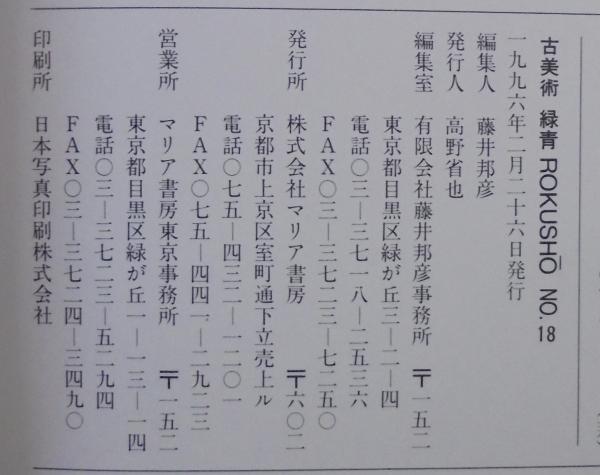 古美術 緑青 ROKUSHŌ NO. 18
一九九六年二月二十六日発行
編集人 藤井邦彦
発行人 高野省也
編集室 有限会社藤井邦彦事務所 〒一五二
東京都目黒区緑が丘三―二―四
電話〇三―三七一八―二五三六
FAX〇三―三七二三―七二五〇
発行所 株式会社マリア書房 〒六〇二
京都市上京区室町通下立売上ル
電話〇七五―四三二―一二〇一
FAX〇七五―四四一―二九二三
営業所 マリア書房東京事務所 〒一五二
東京都目黒区緑が丘一―一三―一四
電話〇三―三七二三―五二九四
FAX〇三―三七二四―三四九〇
印刷所 日本写真印刷株式会社